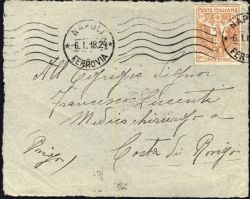 NAPOLI
6.1.18.24
FERROVIA
POSTE ITALIANE
NAPOLI
6.1
FERR
All' Egregio Signor
Francesco
Medico chirurgo a
Costa di Rovigo